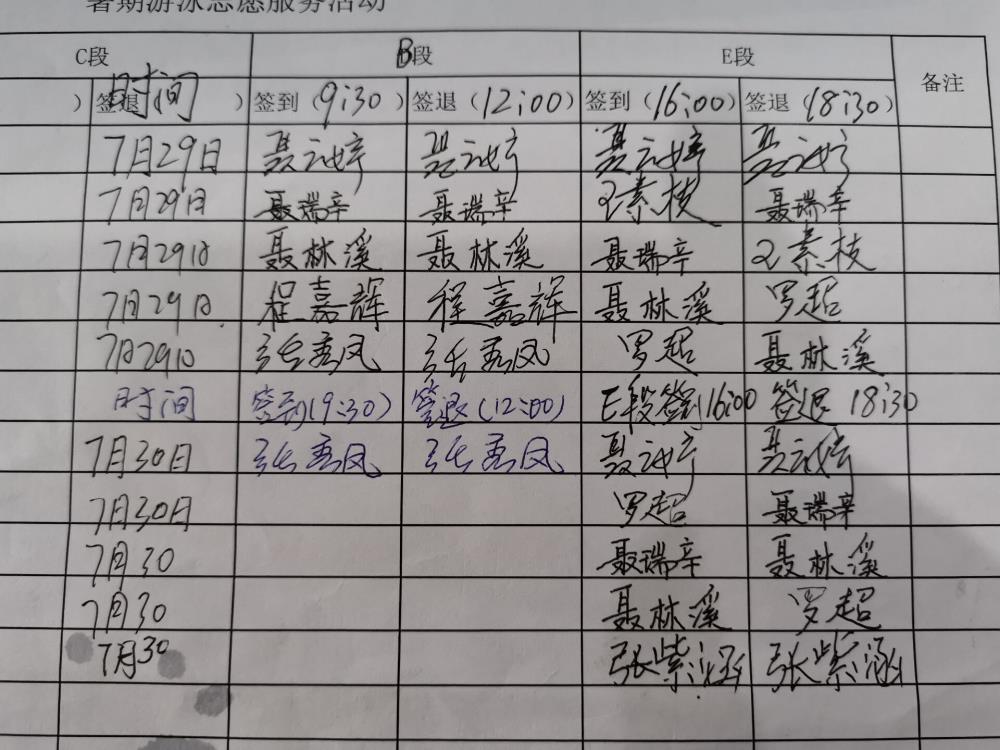 暑期游泳志愿服务活动
C段 B段 E段 备注
) 签退 时间 ) 签到(9:30) 签退(12:00) 签到(16:00) 签退(18:30)
7月29日
7月29日 聂瑞辛 聂瑞辛 王素枝 聂瑞辛
7月29日 聂林溪 聂林溪 聂瑞辛 王素枝
7月29日 程嘉辉 程嘉辉 聂林溪 罗超
7月29日 张秀凤 张秀凤 罗超 聂林溪
时间 签到(9:30) 签退(12:00) E段签到16:00 签退 18:30
7月30日 张秀凤 张秀凤
7月30日 罗超 聂瑞辛
7月30 聂瑞辛 聂林溪
7月30 聂林溪 罗超
7月30 张紫涵 张紫涵